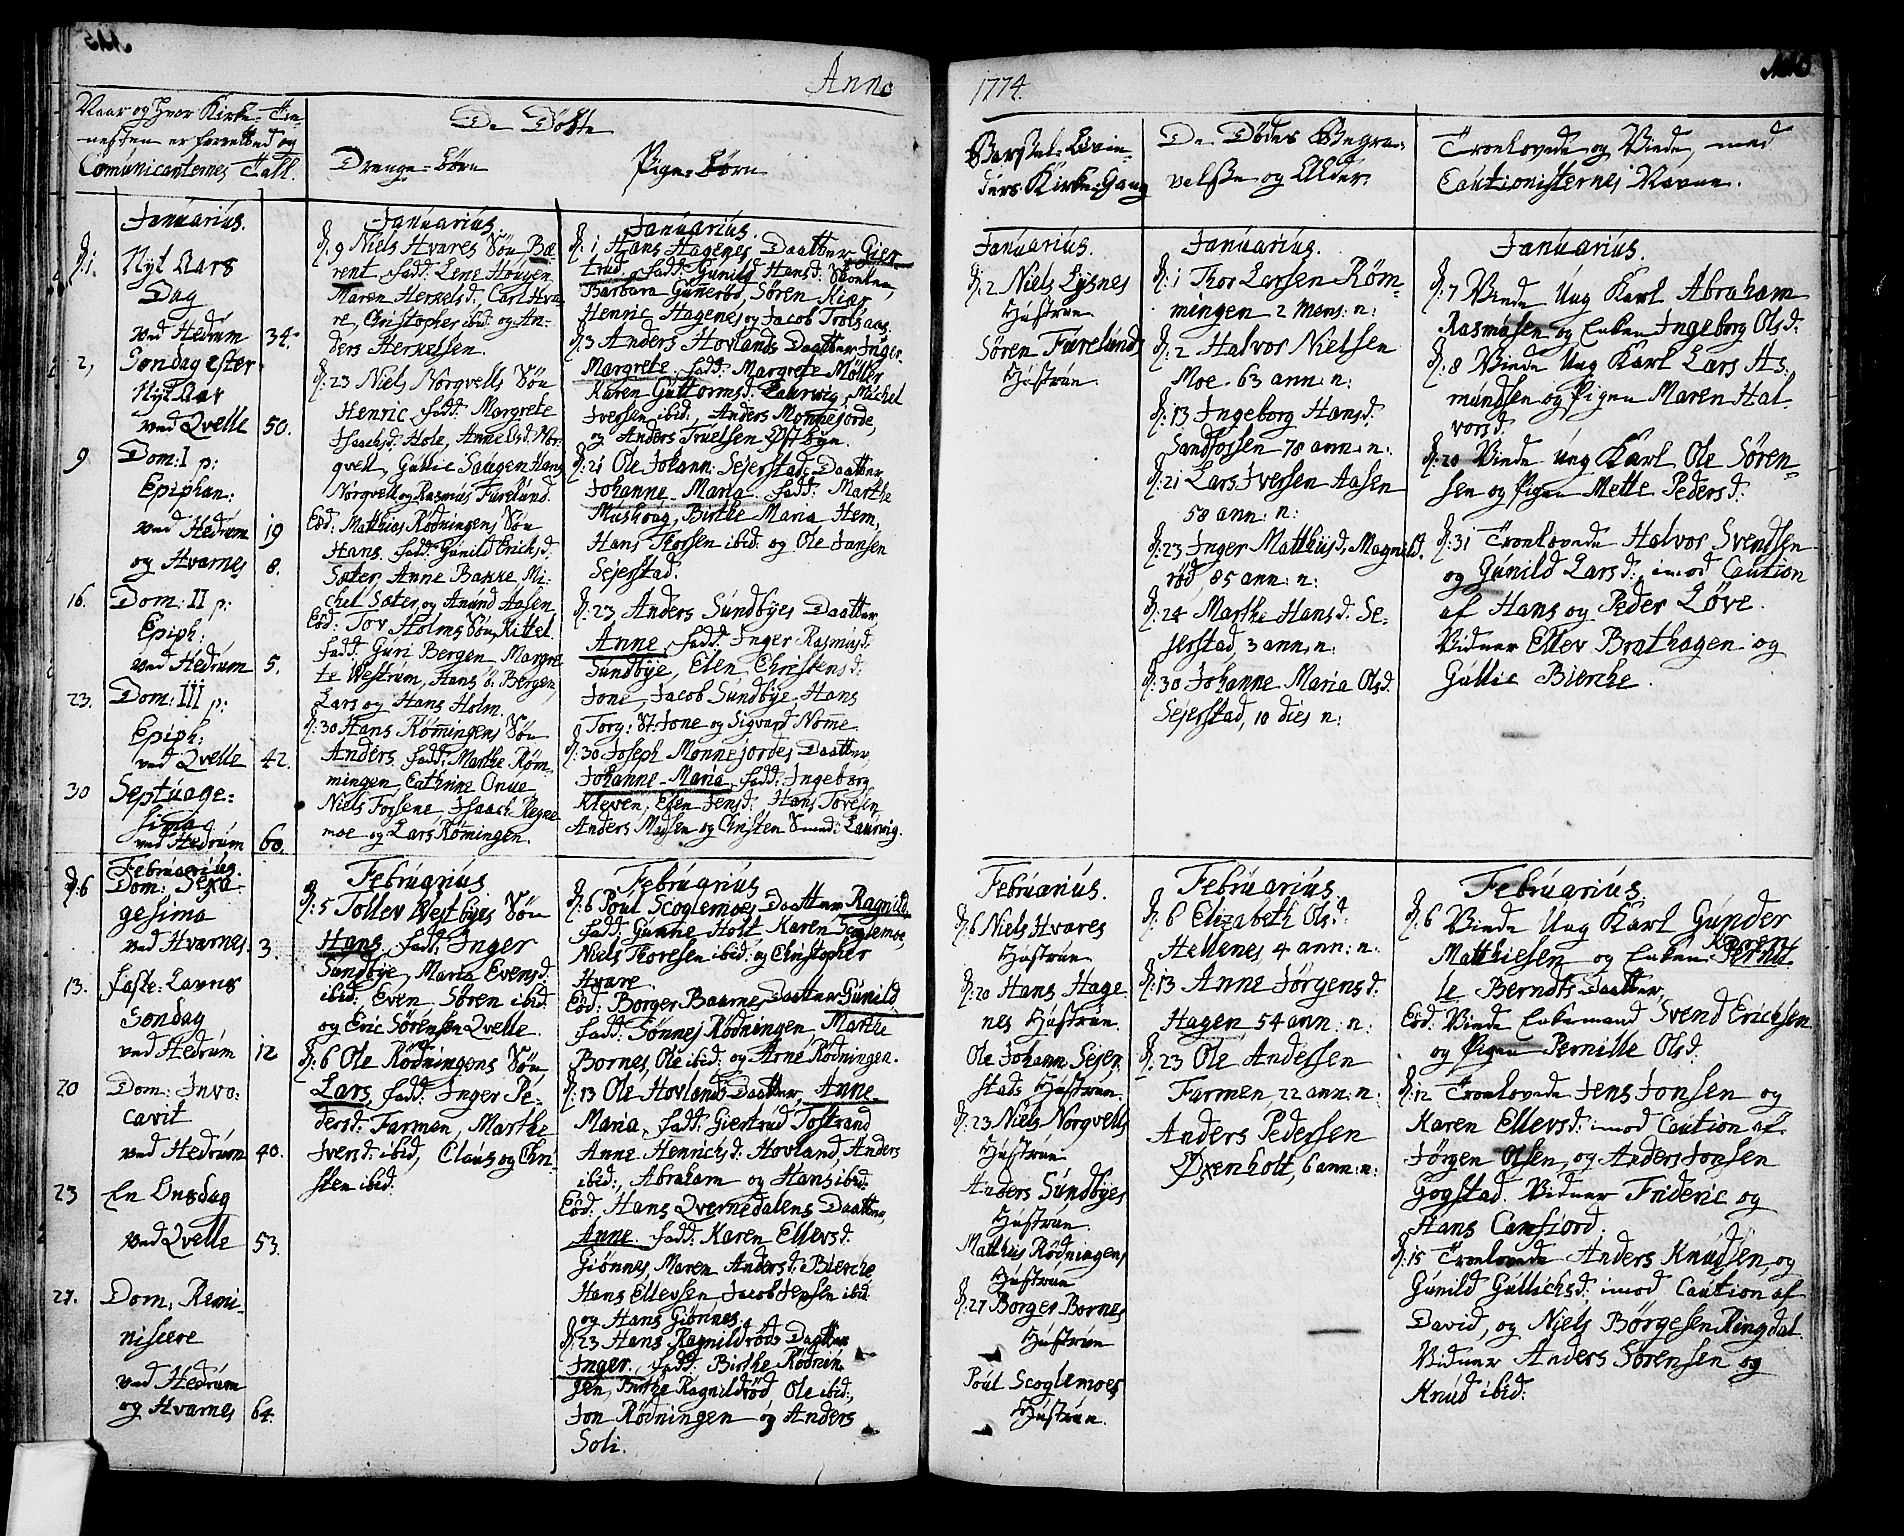 Anno
1774.
Naar og hvor Kirke-Tie-
nesten er forrettet og
Comunicanternes Tall.
De Døbte
Drenge-børn
Pige-børn
Barsel-Qvin-
ders Kirke-Gang
De Dødes Begra-
velse og Alder.
Troelovede og Viede, med
Cautionisternes Navne.
Januarius.
d: 1. Nyt Aars
Dag
ved Hedrum 34.
2, Søndag efter
Nyt Aar
ved Qvelle 50.
9 Dom: I p:
Epiphan:
ved Hedrum 19
og Hvarnes 8.
16. Dom: II p:
Epiph:
ved Hedrum 5.
23. Dom: III p:
Epiph:
ved Qvelle 42.
30 Septuage-
sima
ved Hedrum 60.
Februarius.
d: 6 Dom: Sexa-
gesima
ved Hvarnes 3.
13. Faste-Lavns
Søndag
ved Hedrum 12
20 Dom: Invo-
cavit
ved Hedrum 40.
23 En Onsdag
ved Qvelle 53.
27. Dom. Remi-
niscere
ved Hedrum
og Hvarnes 64.
Januarius.
d: 9 Niels Hvares Søn Bæ-
rent, fadd: Lene Hougen
Maren Herxelsd:, Carl Hva-
re, Christopher ibid: og An-
ders Herxelsen.
d: 23 Niels Norqvells Søn
Henric, fadd: Margrete
Isaachsd: Hole, Anne Olsd: Nor-
qvell, Gullic Saugen Hans
Norqvell og Rasmus Furelund.
Eod: Matthias Rødningens Søn
Hans, fadd: Gunild Ericksd:
Sæter, Anne Bakke, Mi-
chel Sæter, og Anund Aasen
Eod: Tov Holms Søn Kittel
fadd: Guri Bergen, Margre-
te Westrum, Hans ø: Bergen,
Lars og Hans Holm.
d: 30 Hans Rømingens Søn
Anders, fadd: Marthe Røm-
mingen, Cathrine Onue
Niels Fossene, Isaach Regne-
moe og Lars Rømingen.
Februarius
d: 5 Tollev Westbyes Søn
Hans, fadd: Inger
Sundbye, Maria Evensd:
ibid: Even Søren ibid:
og Eric Sørensen Qvelle.
d: 6 Ole Rødningens Søn
Lars, fadd: Inger Pe-
dersd: Farmen, Marthe
Iversd: ibid:, Claus og Chri-
sten ibid:
Januarius.
d: 1 Hans Hagenes Daatter Gier-
trud, fadd: Gunild Hansd: Skonten,
Barbara Gunnerød, Søren Kiær
Henric Hagenes og Jacob Trolsaas.
d: 3 Anders Hovlands Daatter Inger
Margrete, fadd: Margrete Møller
Karen Guttormsd: Laurwig, Michel
Iversen ibid:, Anders Monnejorde,
og Anders Truelsen Østbyn.
d: 21 Ole Johann: Sejerstads Daatter
Johanne-Maria, fadd: Marthe
Muskvog, Birthe Maria Hem,
Hans Thorsen ibid: og Ole Jansen
Sejerstad.
d: 23, Anders Sundbyes Daatter
Anne, fadd: Inger Rasmusd:
Sundbye, Elen Christensd:
Jone, Jacob Sundbye, Hans
Torg: St: Jone og Sigvard Nome
d: 30 Joseph Monnejordes Daatter
Johanne-Maria, fadd: Ingeborg
Kleven, Elen Jensd:, Hans Toresen
Anders Madsen og Christen Smed: Laurvig.
Februarius
d: 6 Poul Scoglemoes Daatter Ragnild
fadd: Gunne Holt, Karen Scoglemoe,
Niels Thoresen ibid: og Christopher
Hvare
Eod: Borger Baarnes Daatter Gunild
fadd: Sønnes Rødningen, Marthe
Bornes, Ole ibid: og Arne Rødningen.
d: 13 Ole Hovlands Daatter, Anne
Maria, fadd: Giertrud Tostrand
Anne Henrichsd: Hovland, Anders
ibid:, Abraham og Hans ibid:
Eod, Hans Qvernedalens Daatter,
Anne, fadd: Karen Ellevsd:
Giønnes, Maren Andersd: Bierche
Hans Ellevsen Jacob Jensen ibid
og Hans Giønnes.
d: 23 Hans Ragnildrøds Daatter
Inger, fadd: Birthe Rødnin-
gen, Birthe Ragnildrød, Ole ibid:,
Jon Rødningen og Anders
Soli.
Januarius.
d: 2 Niels Lysnes
Hustrue
Søren Furelunds
Hustrue.
Februarius.
d: 6 Niels Hvares
Hustrue
d: 20 Hans Hage-
nes Hustrue.
Ole Johann Sejer-
stads Hustrue.
d: 23 Niels Norqvells
Hustrue
Anders Sundbyes
Hustrue
Matthias Rødningens
Hustrue
d: 27 Borger Bornes
Hustrue
Poul Scoglemoes
Hustrue.
Januarius.
d: 1 Thor Larsen Røm-
mingen 2 Mens: n:
d: 2 Halvor Nielsen
Moe 63 ann: n:
d: 13 Ingeborg Hansd:
Sandfossen 78 ann: n:
d: 21 Lars Iversen Aasen
58 ann: n:
d: 23 Inger Matthisd: Magnild-
rød, 85 ann: n:
d: 24 Marthe Hansd: Se-
jerstad, 3 ann: n:
d: 30 Johanne Maria Olsd:
Sejerstad, 10 dies n:
Februarius
d: 6 Elizabeth Olsd:
Hellenes 4 ann: n:
d: 13 Anne Jørgensd:
Hagen 54 ann: n:
d: 23 Ole Andersen
Farmen, 22 ann: n:
Anders Pedersen
Øxenholt, 6 ann: n:
Januarius.
d: 7 Viede Ung Karl Abraham
Rasmusen og Enken Ingeborg Olsd:
d: 8 Viede Ung Karl Lars As-
mundsen og Pigen Maren Hal-
vorsd:
d: 20 Viede Ung Karl Ole Søren-
sen og Pigen Mette Pedersd:
d: 31 Troelovede Halvor Svendsen
og Gunild Larsd: imod Caution
af Hans og Peder Løve.
Vidner Ellev Brathagen og
Gullic Bierche.
Februarius
d: 6 Viede Ung Karl Gunder
Matthiesen og Enken Karen Pernil-
le Berndts Daatter,
Eod: Viede Enkemand Svend Ericksen
og Pigen Pernille Olsd:
d: 12 Troelovede Jens Jonsen og
Karen Ellevsd: imod Caution af
Jørgen Olsen, og Anders Jonsen
Gogstad. Vidner Frideric og
Hans Camfiord.
d: 15 Troelovede Anders Knudsen, og
Gunild Gullichsd: imod Caution af
David, og Niels Børgesen Ringdal
Vidner Anders Sørensen og
Knud ibid: